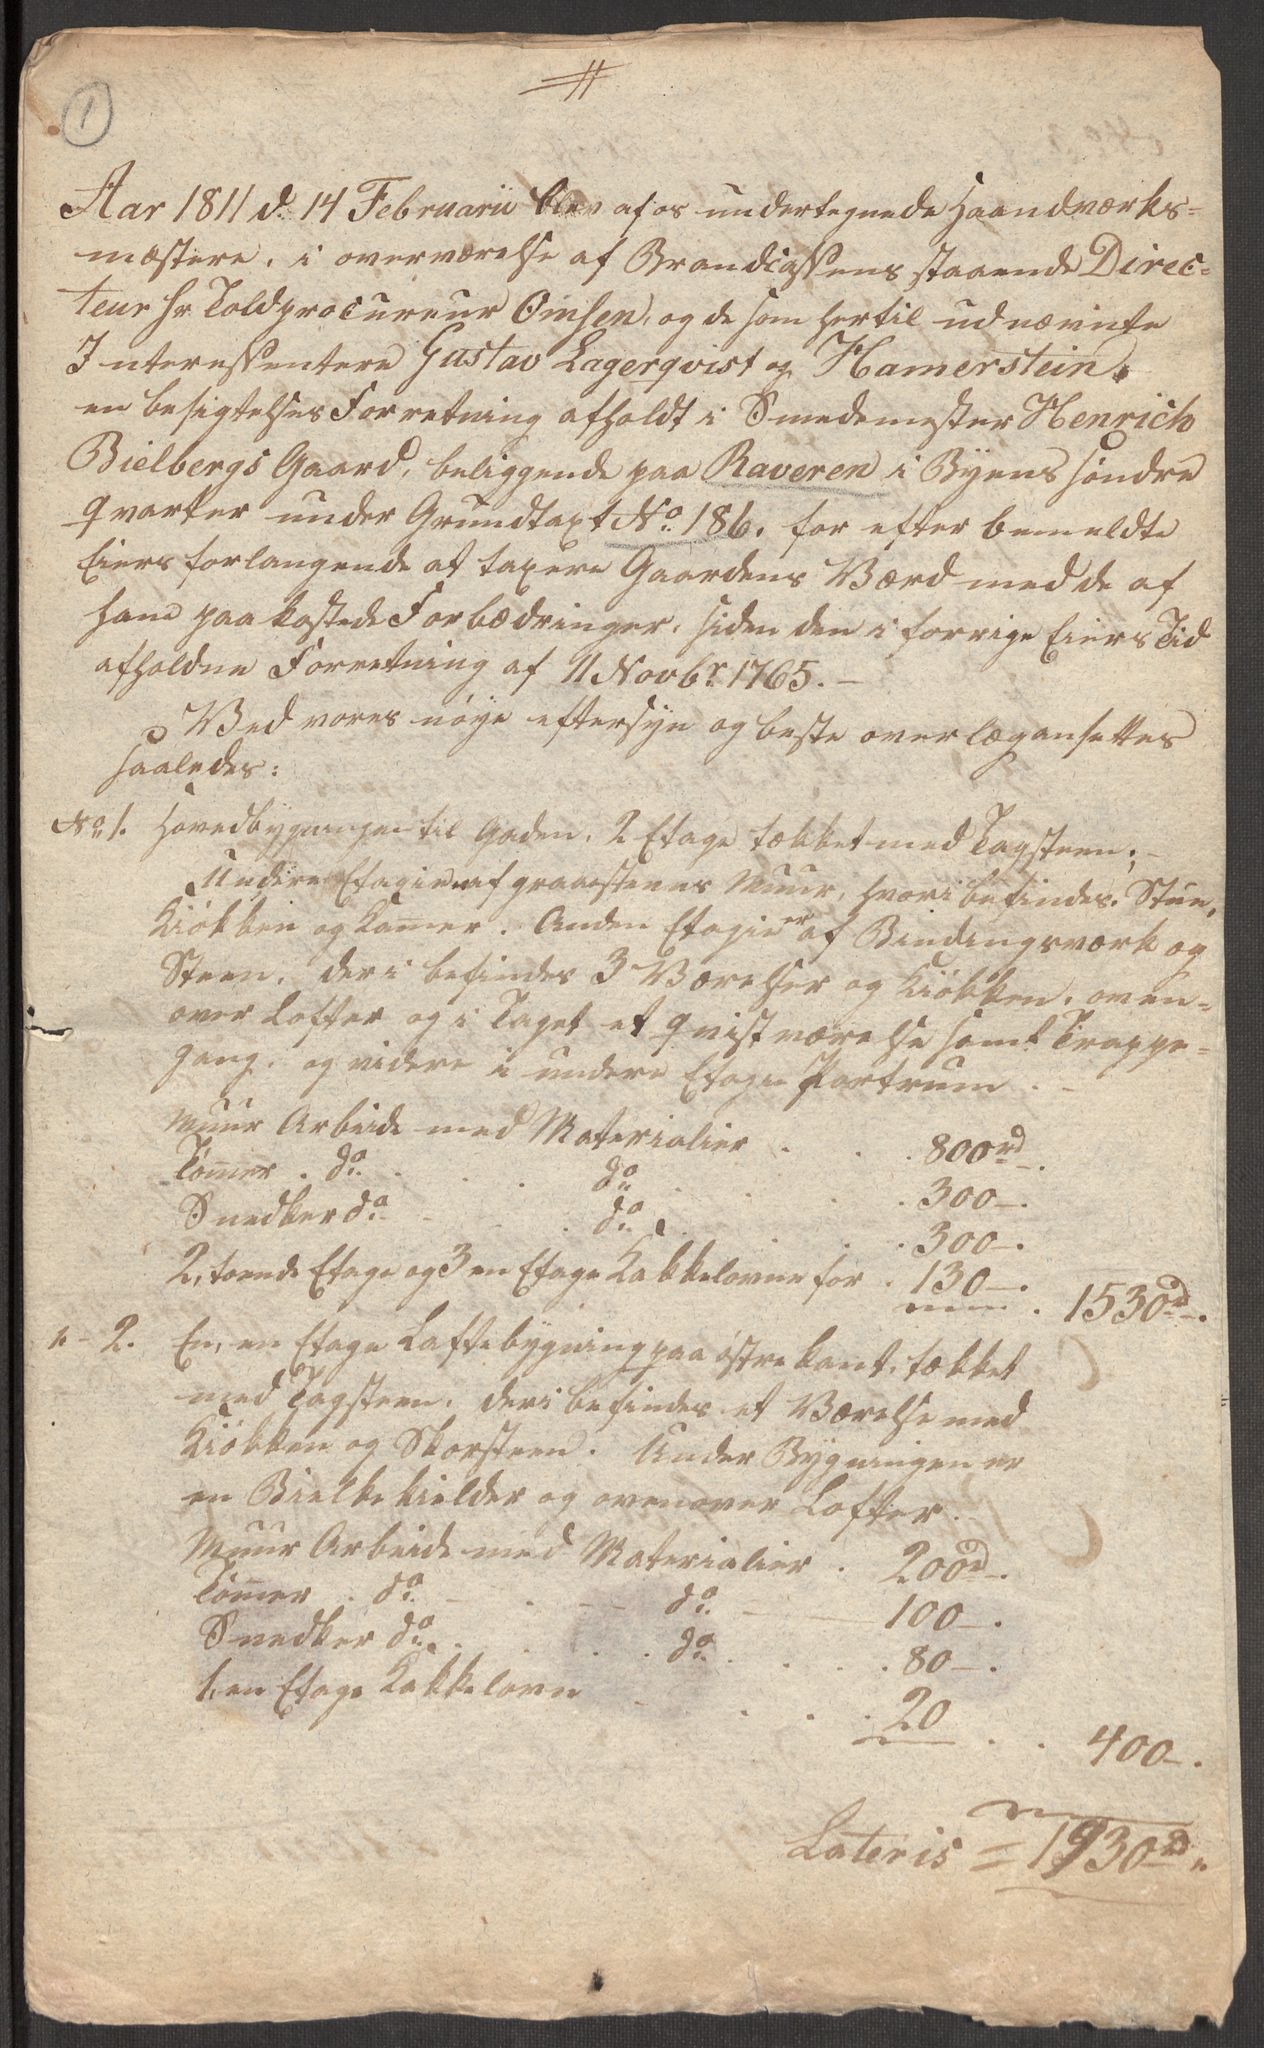 1
Aar 1811 d. 14 Februarii blev af os undertegnede Haandværks-
mæstere, i overværelse af Brandcassens staaende Direc-
teur Hr Toldprocureur Omsen, og de som hertil udnævnte
Interessentere Gustav Lagerqvist og Hamerstein.
en besigtelses Forretning afholdt i Smedemester Henrich
Bielbergs Gaard, beliggende paa Raveren i Byens søndre
qvarter under Grundtaxt No. 186. for efter bemeldte
Eiers forlangende at taxere Gaardens Værd med de af
ham paakostede Forbædringer, siden den i forrige Eiers Tid
afholdne Forretning af 11 Novbr. 1765. -
Ved vores nøye eftersyn og beste overlæg ansettes
saaledes:
No. 1. Hovedbygningen til Gaden, 2 Etage tækket med Tagsteen; -
Undere Etagie af graaesteens Muur, hvori befindes Stue,
Kiøkken og Kamer. Anden Etagie er af Bindingsværk og
Steen, deri befindes 3 Værelser og Kiøkken, oven-
over Lofter og i Taget et qvistværelse samt Trappe-
gang, og videre i undere Etagie Portrum. -
Muur Arbeide med Materialier . . . 800 rd.
Tømer . do. . . . do. . . . 300 -.
Snedker do. - - . do. . . . 300 -.
2, toende Etage og 3 en Etage Kakkelovne for . 130 -. . 1530 rd.
" - 2. En, en Etage Laftebygning paa østre kant, tækket
med Tagsteen, deri befindes et Værelse med
Kiøkken og Skorsteen. Under Bygningen er
en Bielkekielder og ovenover Lofter.
Muur Arbeide med Materialier . 200 rd.
Tømer . do. - . - - do. - - 100 -.
Snedker do. . . . . do. . . . 80 -.
1, en Etage Kakkelovn - . . . 20 . . 400 -.
Lateris = 1930 rd.